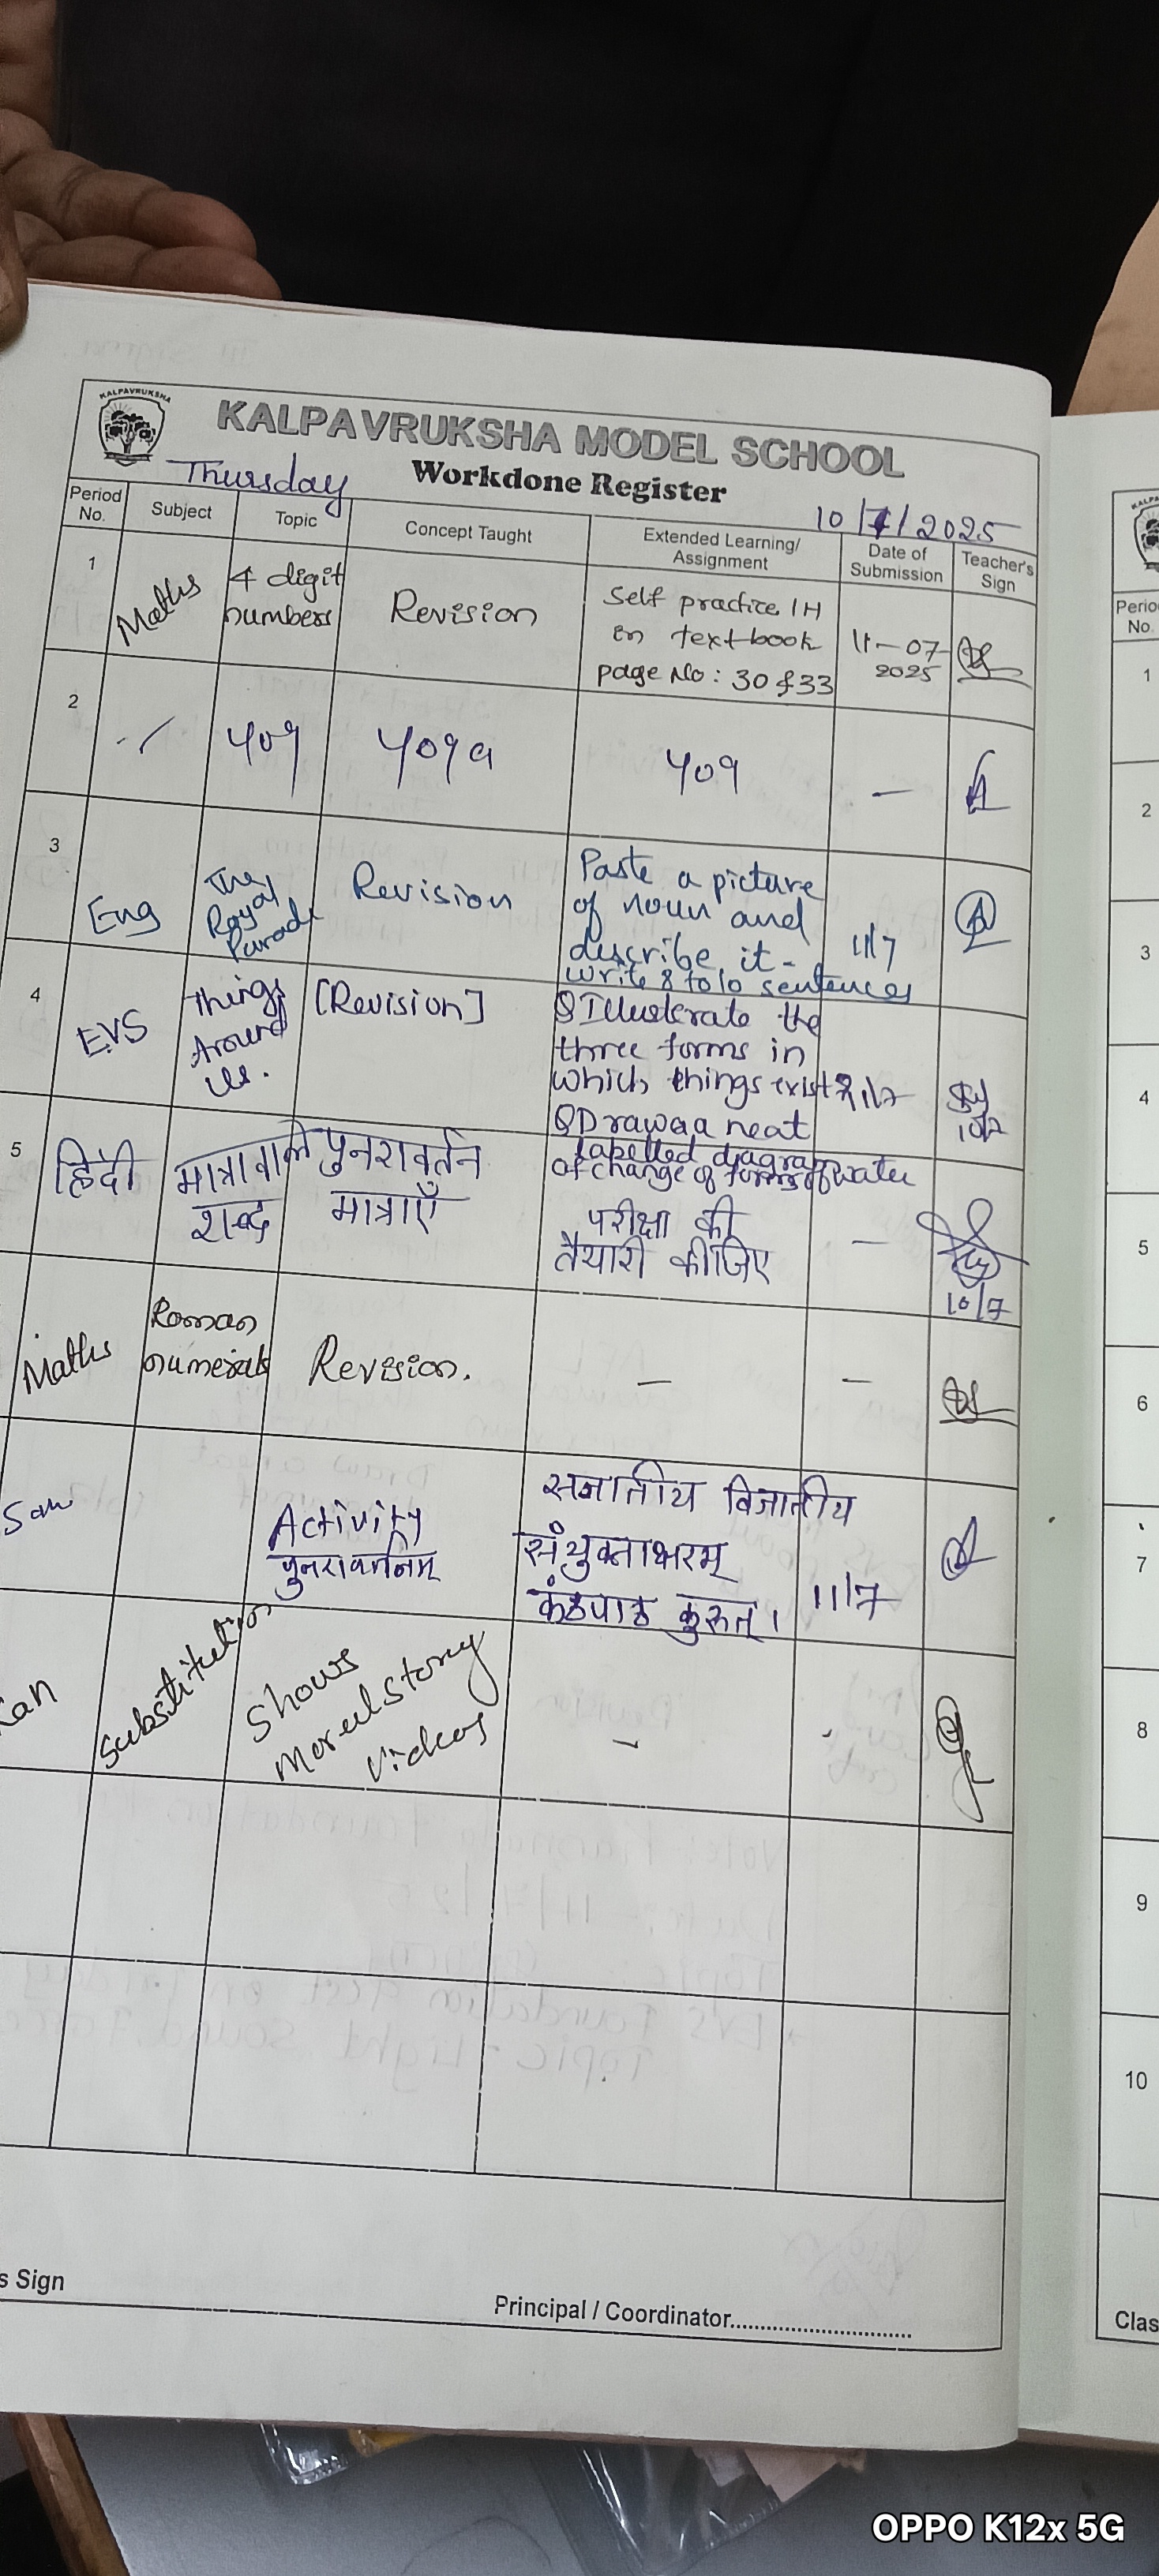 KALPAVRUKSHA
KALPAVRUKSHA MODEL SCHOOL
Workdone Register
Thursday
10/7/2025
Period No.
Subject
Topic
Concept Taught
Extended Learning/ Assignment
Date of Submission
Teacher's Sign
1
Maths
4 digit
numbers
Revision
Self practice 1H
in textbook
page No: 30 & 33
11-07-
2025
2
Yoga
—
3
Eng
The
Royal
Parade
Revision
Paste a picture
of noun and
describe it-
write 8 to 10 sentences
11/7
4
EVS
Things
Around
Us.
[Revision]
the
three forms in
which things exist
11/7
a neat
labelled diagram
of change of forms of water
10/7
5
हिंदी
मात्रावाले
शब्द
पुनरावर्तन
मात्राएँ
परीक्षा की
तैयारी कीजिए
—
10/7
Maths
Roman
numerals
Revision.
—
—
San
Activity
पुनरावर्तनम्
सजातीय विजातीय
संयुक्ताक्षरम्
कंठपाठ कुरुत्।
11/7
Kan
Substitution
Shows
Moral story
Videos
—
s Sign
Principal / Coordinator
Perio
No.
1
2
3
4
5
6
7
8
9
10
Clas
OPPO K12x 5G